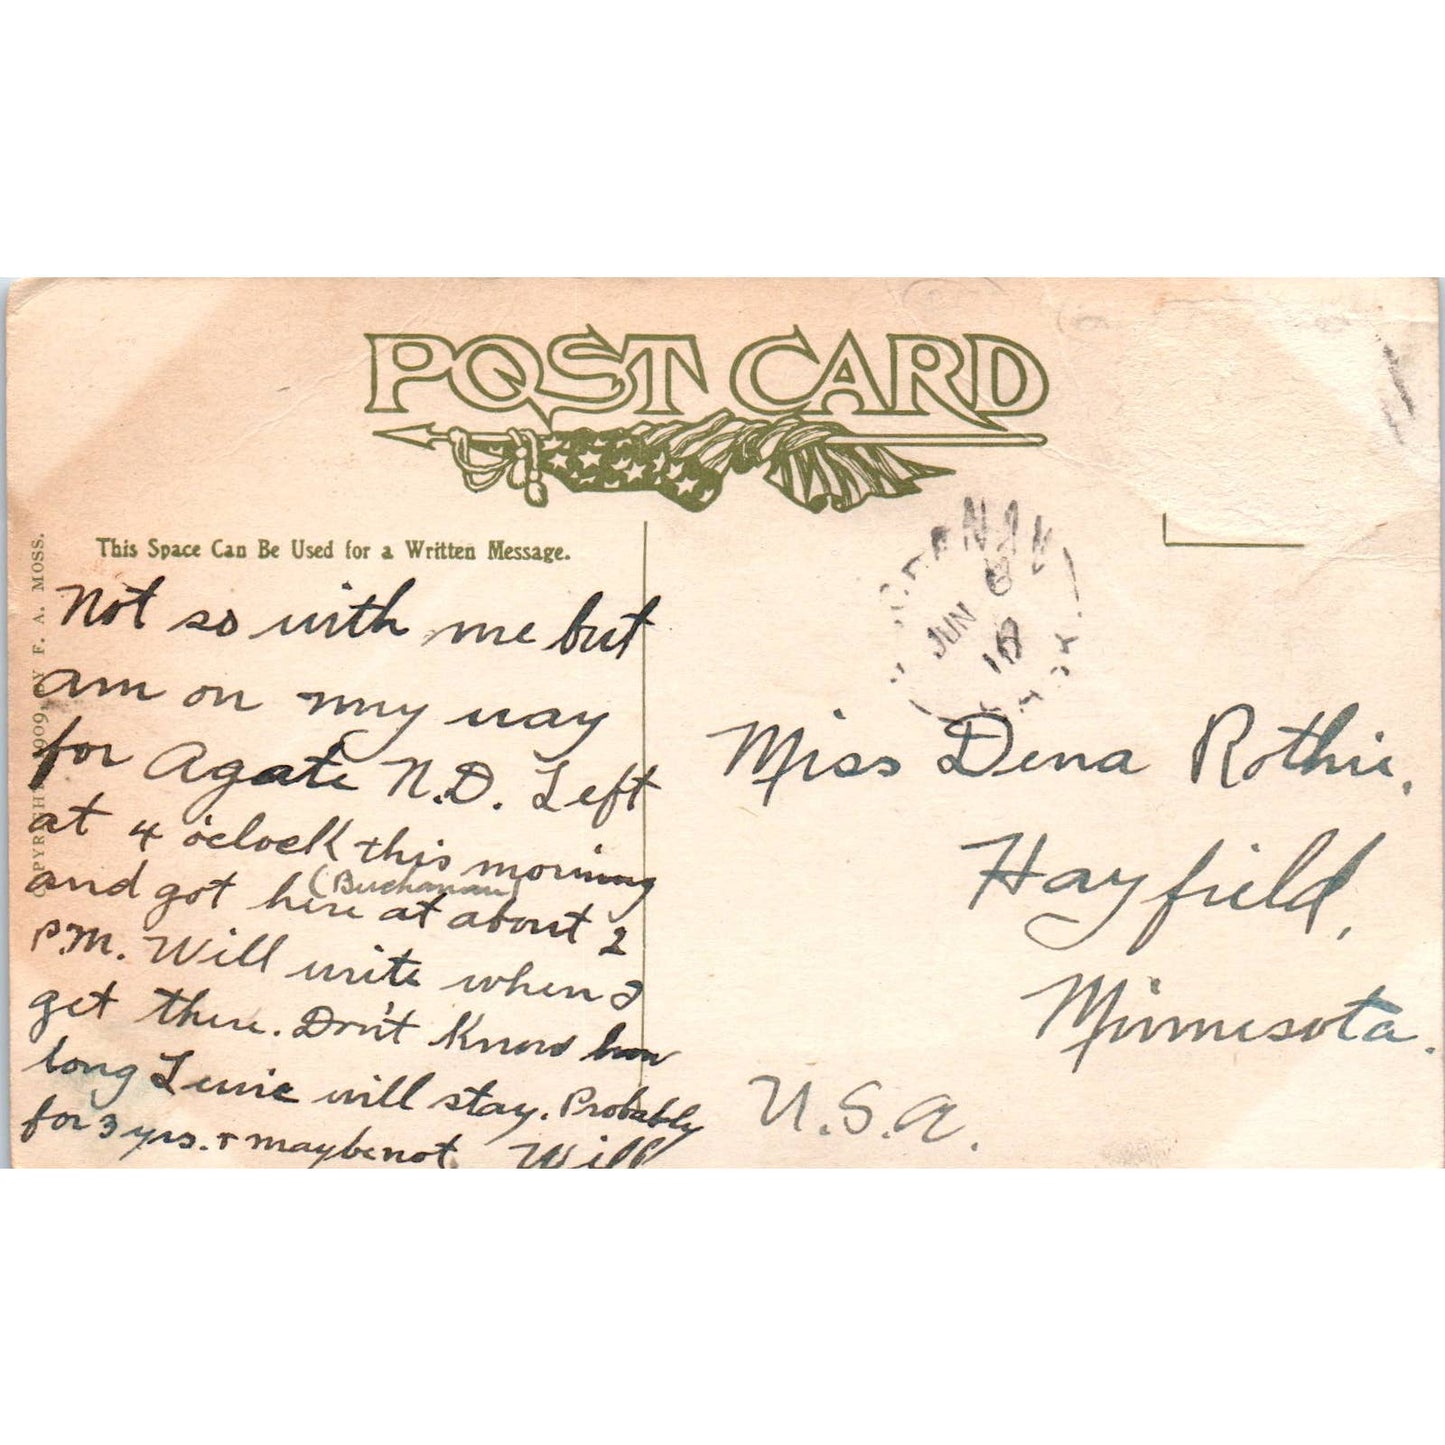 POST CARD
This Space Can Be Used for a Written Message.
COPYRIGHT 1909, BY F. A. MOSS.
Not so with me but
am on my way
for Agate N.D. Left
at 4 o'clock this morning
and got here (Buchanan) at about 2
P.M. Will write when I
get there. Don't know how
long Lewie will stay. Probably
for 3 yrs. & maybe not. Will
JUN 8
Miss Dena Rothie,
Hayfield,
Minnesota.
U.S.A.